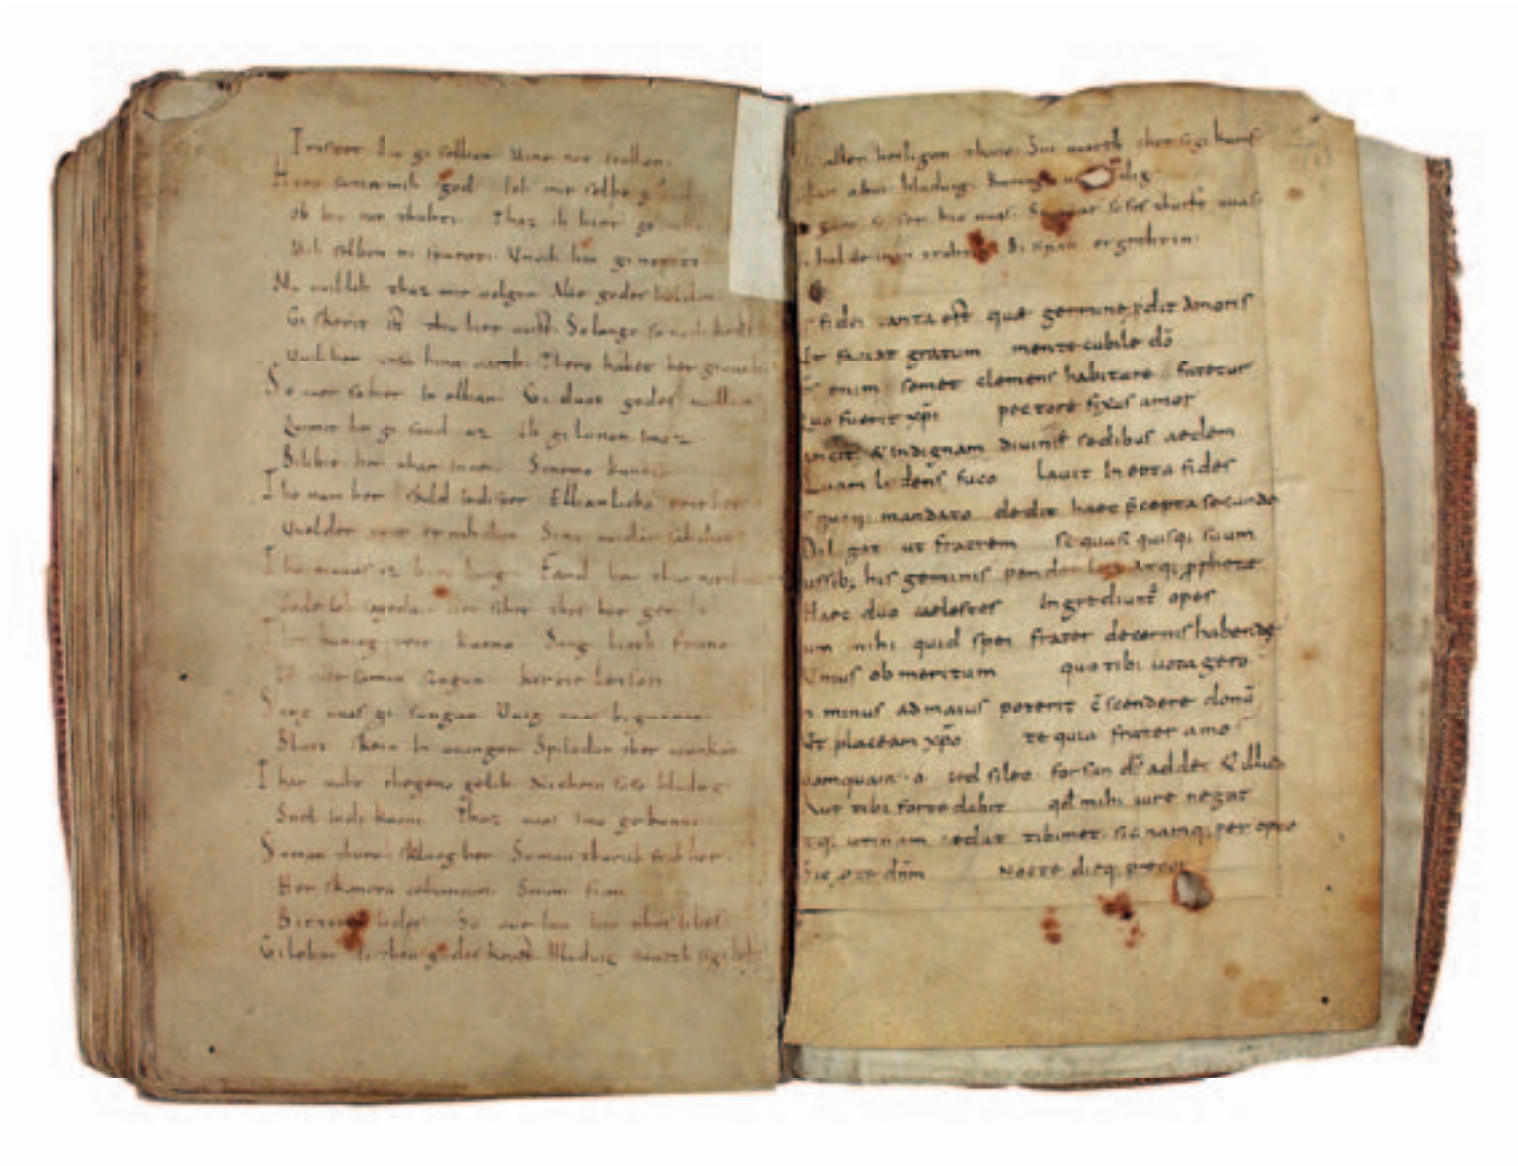 Trostet hiu gi sellion Mine not stallon.
Hera santa mih god. Ioh mir selbo
Ob hiu rat thuhti. Thaz ih hier ge
Mih selbon ni sparoti. Uncih hiu gineriti
Nu uuillih thaz mir uolgon Alle godes holdon
Gi skerit ist thiu hier uuist. So lango so uuili
Uuili her unsa hina uarth. Thero habet her giuualt
So uuer so hier in ellian. Gi duot godes uuillion
Quimit he gi sund uz. Ih gi lonon imoz
Bilibit her thar inne. Sinemo kunnie
Tho nam her skild indi sper Ellianlicho reit her
Uuolder uuar errahchon Sina uuidar sahchon
Tho ni uuas iz buro lang. Fand her thia northman
Gode lob sageda. Her sihit thes her gereda
Ther kuning reit kuono Sang lioth frano
Ioh alle saman sungun kyrrie leison
Sang uuas gi sungan Uuig uuas bigunnan
Bluot skein in uuangon Spilodun ther urankon
Thar uaht thegeno gelih Nichein soso hluduig
Snel indi kuoni. Thaz uuas imo gekunni
Suman thuruh skluog her. Suman thuruh stah her
Her skancta cehanton. Sinan fian
Bitteres lides. So uue hin hio thes libes
Gilobot si thiu godes kraft. Hluduig uuarth sigihaft
allen heiligon thanc. Sin uuarth ther sigi kamf
abur hluduig. Kuning
so ser hio uuas. so ses thurft uuas
hal de inan truhtin Bi sinan ergrehtin
fidei tanta est que germine pdit amoris
Ut faciat gratum mente cubile dō
enim semet clemens habitare fatetur
Quo fuerit xpi pectore fixus amor
& indignam diuinis sedibus aedem
Quam li dens fuco lauit In ęsta fides
mandato dedit haec p̄cepta secundo
Diligat ut fratrem se quasi quisq; suum
ussib; his geminis pendet atq; pphete
Haec duo caelestes Ingrediunt opes
um mihi quid spei frater decernis habende
Unius ob meritum quo tibi uota gero
minus ad maius poterit c̄scendere donū
Ut placeam xpō te quia frater amo
amquam a sed sileo forsan ds addet & illud
Aut tibi forte dabit qd mihi iure negat
tq; utinam cedat tibimet sic namq; per opto
Sic pete dnm Nocte dieq; precor